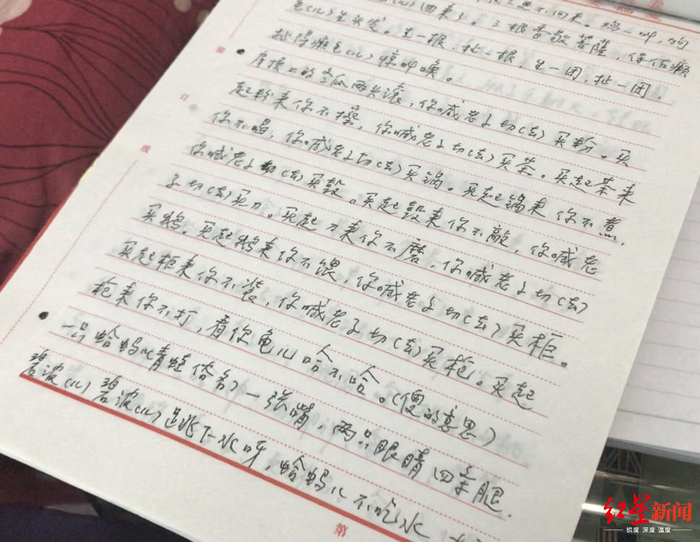 回来
(儿)回来了。三根香敬菩萨，保佑癞
生一根，扯一根，生一团，扯一团，
扯得癞壳(儿)惊叫唤。
上的冬瓜两头滚，你喊老子切(去)买粉。买
起粉来你不擦，你喊老子切(去)买茶。买起茶来
你不喝，你喊老子切(去)买锅。买起锅来你不煮，
你喊老子切(去)买鼓。买起鼓来你不敲，你喊老
子切(去)买刀。买起刀来你不磨，你喊老子切(去)
买鹅。买起鹅来你不喂，你喊老子切(去)买柜。
买起柜来你不装，你喊老子切(去)买枪。买起
枪来你不打，看你龟儿哈不哈。(傻的意思)
一只蛤蚂儿(青蛙俗名)一张嘴，两只眼睛四条腿。
碧波(儿)碧波(儿)跳下水呀，蛤蚂儿不吃水
第
红星新闻
锐度 深度 温度